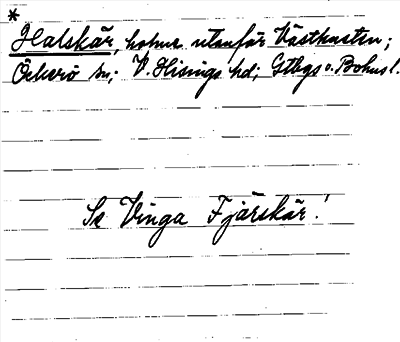 *
Halskär, holme utanför Västkusten;
Öckerö sn; V. Hisings hd; Gtbgs o. Bohusl.
Se Vinga Fjärskär!